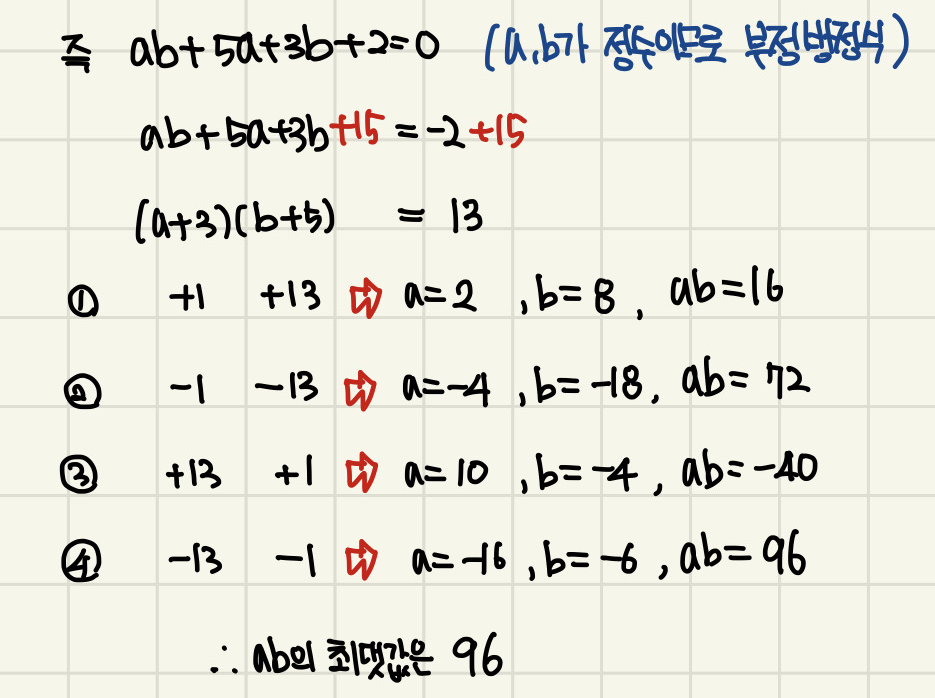 즉 ab+5a+3b+2=0 (a,b가 정수이므로 부정방정식)
ab+5a+3b+15 = -2+15
(a+3)(b+5) = 13
① +1 +13 ⇨ a=2 , b=8 , ab=16
② -1 -13 ⇨ a=-4 , b=-18, ab=72
③ +13 +1 ⇨ a=10 , b=-4 , ab=-40
④ -13 -1 ⇨ a=-16 , b=-6 , ab=96
∴ ab의 최댓값은 96